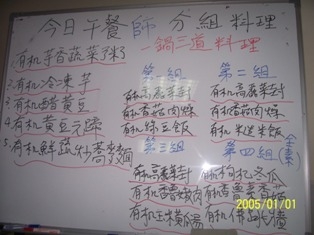 今日午餐 師 分組料理
一鍋三道料理
有机芋香蔬菜粥
2.有机冷凍芋
3.有机醋黄豆
4.有机黄豆元蹄
5.有机鮮蔬什蕎麥麵
第一組
有机高麗菜封
有机香菇肉燥
有机綠豆飯
第二組
有机高麗菜封
有机香菇肉燥
有机米送米飯
第三組
有机高麗菜封
有机肉
有机玉米 湯
第四組(全素)
有机枸杞冬瓜
有机 香菇
有机佛跳牆
2005/01/01